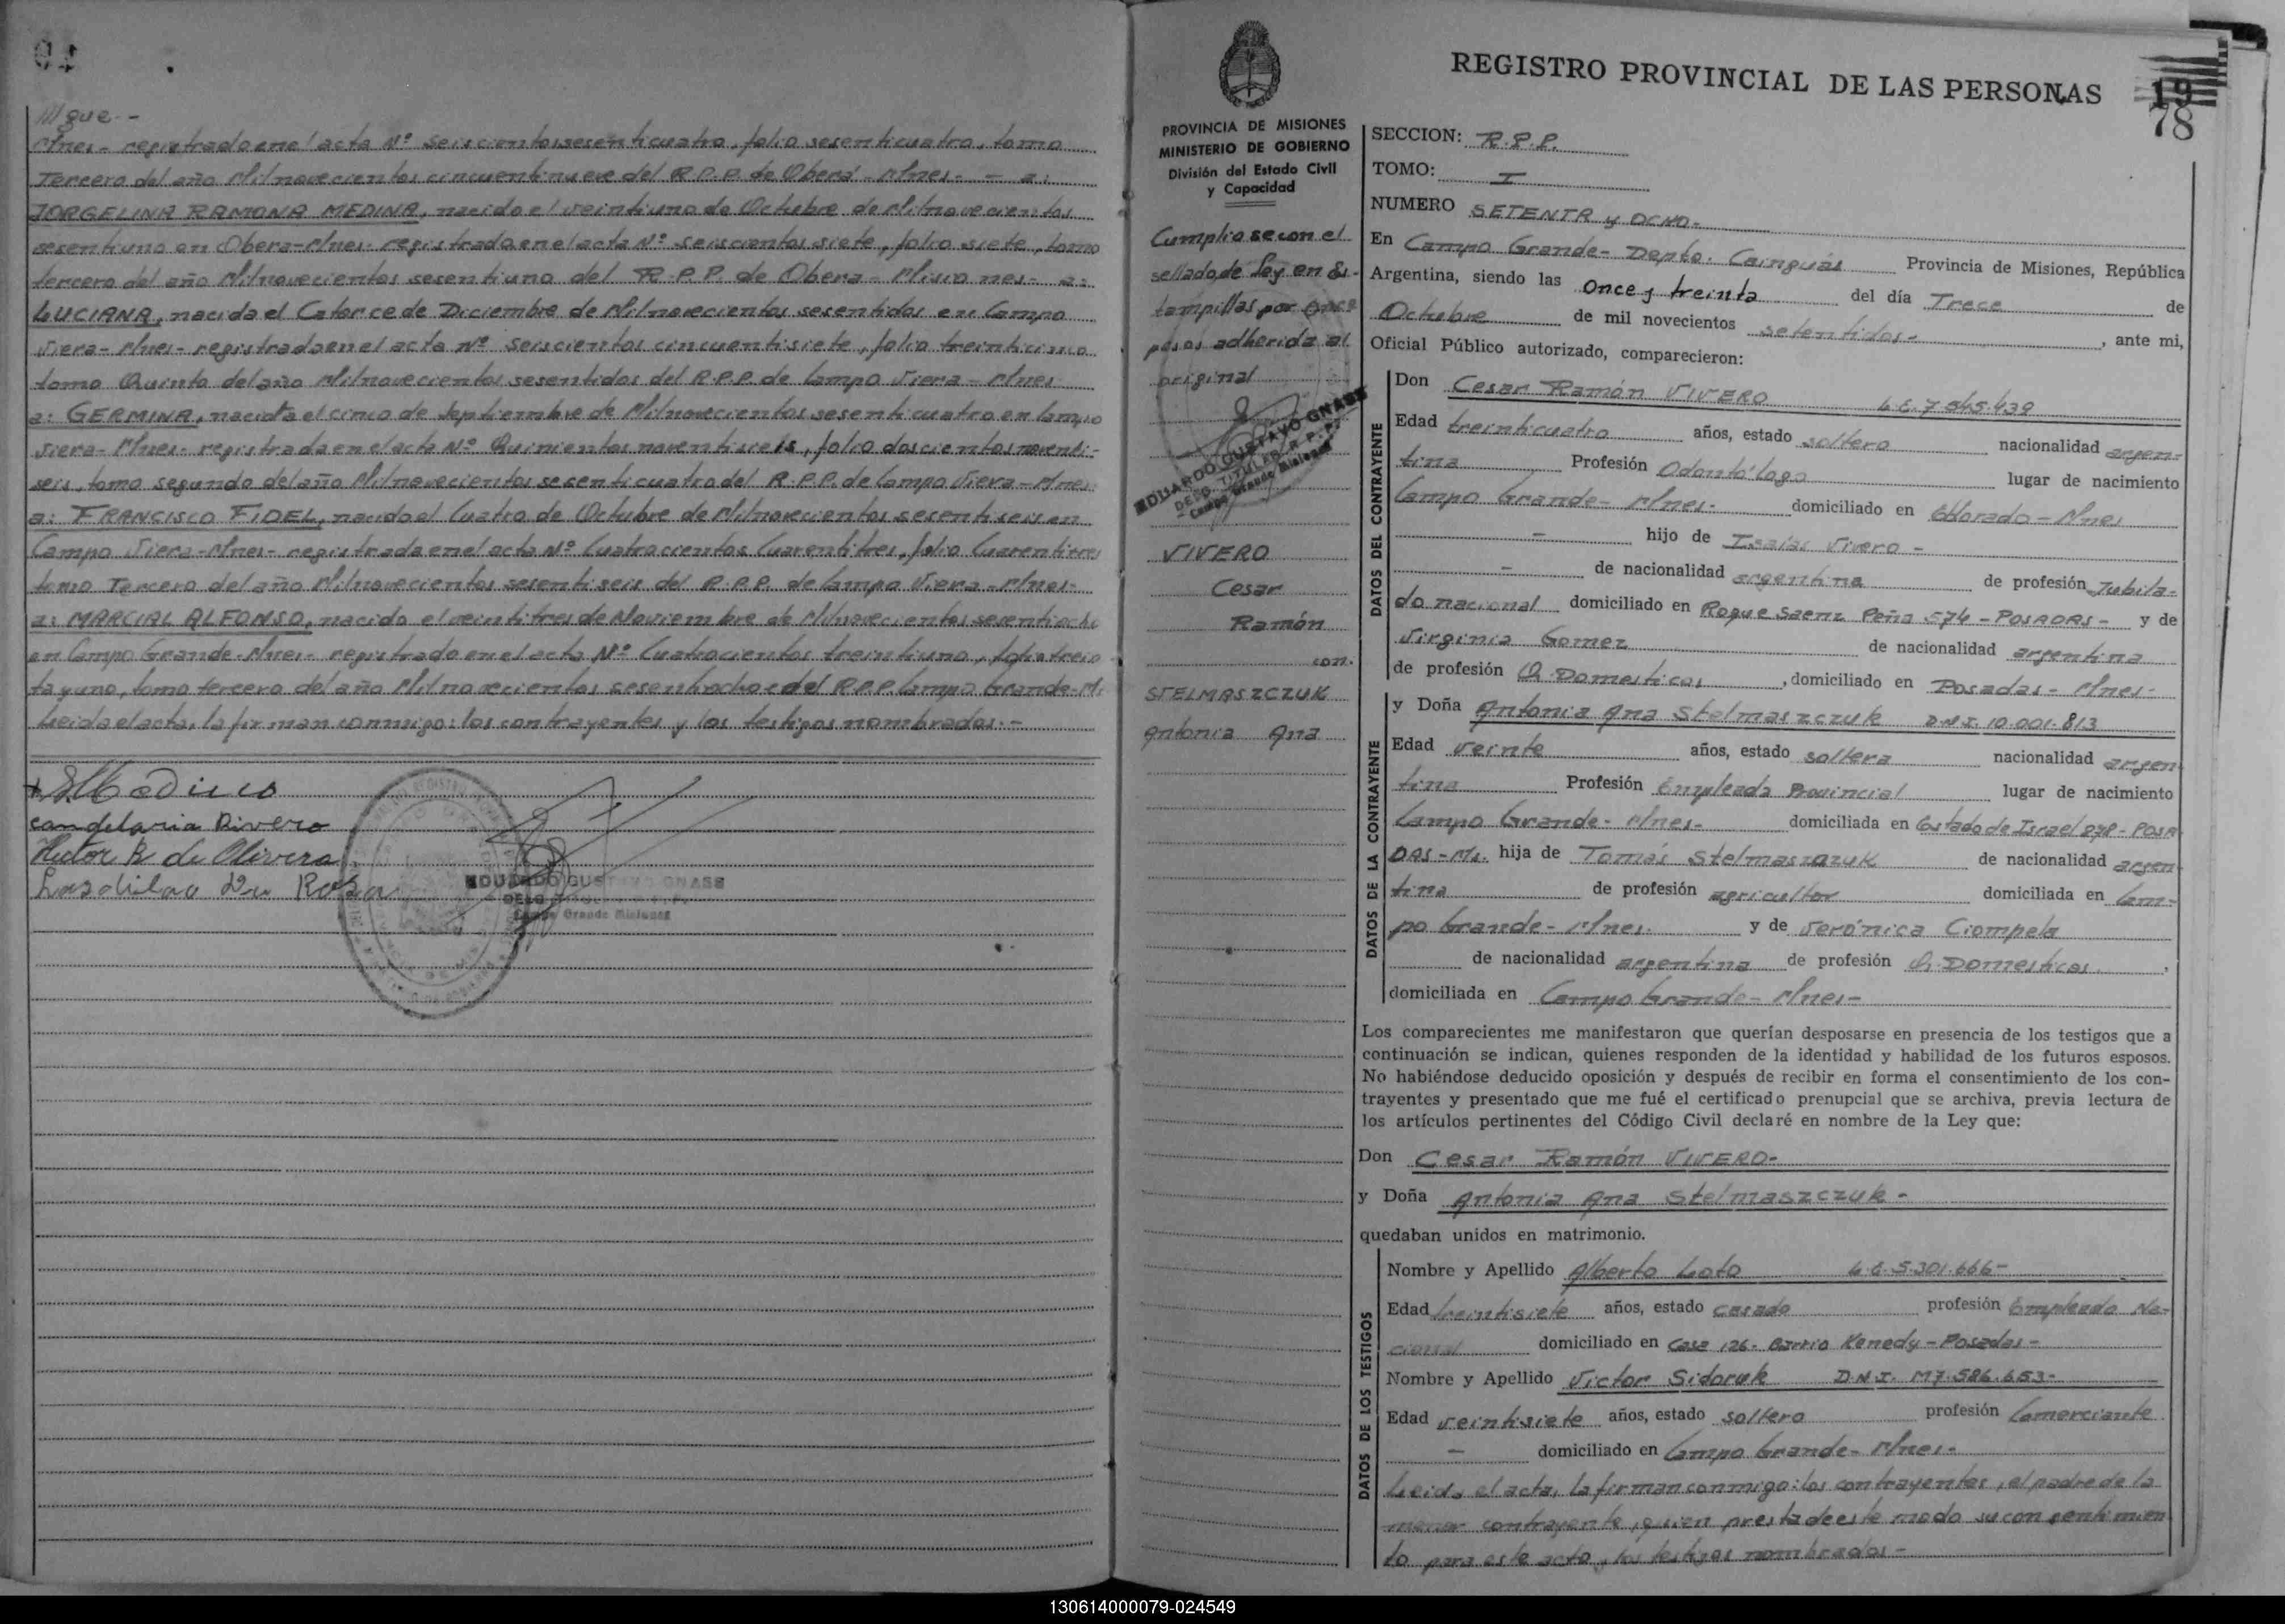 ///gue.-
Mnes- registrado en el acta Nº seiscientos sesenticuatro, folio sesenticuatro, tomo
Tercero del año Milnovecientos cincuentinueve del R.P.P. de Oberá-Mnes- - a:
JORGELINA RAMONA MEDINA, nacida el veintiuno de Octubre de Milnovecientos
sesentiuno en Obera-Mnes- registrada en el acta Nº seiscientos siete, folio siete, tomo
tercero del año Milnovecientos sesentiuno del R.P.P. de Obera - Misiones- a:
LUCIANA, nacida el Catorce de Diciembre de Milnovecientos sesentidos en Campo
Viera-Mnes- registrada en el acta Nº seiscientos cincuentisiete, folio treinticinco
tomo Quinto del año Milnovecientos sesentidos del R.P.P. de Campo Viera - Mnes-
a: GERMINA, nacida el cinco de Septiembre de Milnovecientos sesenticuatro en Campo
Viera- Mnes- registrada en el acta Nº Quinientos noventiseis, folio doscientos noventi-
seis, tomo segundo del año Milnovecientos sesenticuatro del R.P.P. de Campo Viera-Mnes
a: FRANCISCO FIDEL, nacido el Cuatro de Octubre de Milnovecientos sesentiseis en
Campo Viera-Mnes- registrada en el acta Nº Cuatrocientos Cuarentitres, folio Cuarentitres
tomo Tercero del año Milnovecientos sesentiseis del R.P.P. de Campo Viera-Mnes-
a: MARCIAL ALFONSO, nacido el veintitres de Noviembre de Milnovecientos sesentiocho
en Campo Grande-Mnes- registrado en el acta Nº Cuatrocientos treintiuno, folio trein
ta y uno, tomo tercero del año Milnovecientos sesentiocho del R.P.P. Campo Grande-M.
Leida el acta, la firman conmigo: los contrayentes y los testigos nombrados.-
candelaria Rivero
Hector R de Olivera
EDUARDO GUSTAVO GNASS
Campo Grande Misiones
PROVINCIA DE MISIONES
MINISTERIO DE GOBIERNO
División del Estado Civil
y Capacidad
Cumpliose con el
sellado de Ley en Es-
tampillas por once
pesos adherida al
original
EDUARDO GUSTAVO GNASS
DELG. TITULAR R.P.P.
Campo Grande Misiones
VIVERO
Cesar
Ramón
con.
STELMASZCZUK
Antonia Ana
REGISTRO PROVINCIAL DE LAS PERSONAS
19
78
SECCION: R.P.P.
TOMO: I
NUMERO SETENTA y OCHO-
En Campo Grande- Depto. Cainguás Provincia de Misiones, República
Argentina, siendo las Once y treinta del día Trece de
Octubre de mil novecientos setentidos- , ante mi,
Oficial Público autorizado, comparecieron:
DATOS DEL CONTRAYENTE
Don Cesar Ramón VIVERO L.E.7.545.439
Edad treinticuatro años, estado soltero nacionalidad argen-
tina Profesión Odontólogo lugar de nacimiento
Campo Grande- Mnes- domiciliado en Eldorado-Mnes
- hijo de Isaías Vivero -
- de nacionalidad argentina de profesión Jubila-
do nacional domiciliado en Roque Saenz Peña 574 - POSADAS- y de
Virginia Gomez de nacionalidad argentina
de profesión Q. Domesticos , domiciliado en Posadas- Mnes-
DATOS DE LA CONTRAYENTE
y Doña Antonia Ana Stelmaszczuk D.N.I. 10.001.813
Edad veinte años, estado soltera nacionalidad argen
tina Profesión Empleada Provincial lugar de nacimiento
Campo Grande- Mnes- domiciliada en Estado de Israel - POSA
DAS-Ms. hija de Tomás Stelmaszczuk de nacionalidad argen
tina de profesión agricultor domiciliada en Cam-
po Grande- Mnes. y de Verónica Ciompela
de nacionalidad argentina de profesión Q. Domesticos ,
domiciliada en Campo Grande- Mnes-
Los comparecientes me manifestaron que querían desposarse en presencia de los testigos que a
continuación se indican, quienes responden de la identidad y habilidad de los futuros esposos.
No habiéndose deducido oposición y después de recibir en forma el consentimiento de los con-
trayentes y presentado que me fué el certificado prenupcial que se archiva, previa lectura de
los artículos pertinentes del Código Civil declaré en nombre de la Ley que:
Don Cesar Ramón VIVERO-
y Doña Antonia Ana Stelmaszczuk -
quedaban unidos en matrimonio.
DATOS DE LOS TESTIGOS
Nombre y Apellido Alberto Loto L.E.5.301.666-
Edad treintisiete años, estado casado profesión Empleado Na-
cional domiciliado en Casa 126- Barrio Kenedy-Posadas-
Nombre y Apellido Victor Sidoruk D.N.I. M7.586.653-
Edad veintisiete años, estado soltero profesión Comerciante
- domiciliado en Campo Grande- Mnes-
Leida el acta, la firman conmigo: los contrayentes, el padre de la
menor contrayente, quien presta de este modo su consentimien
to para este acto, los testigos nombrados-
130614000079-024549